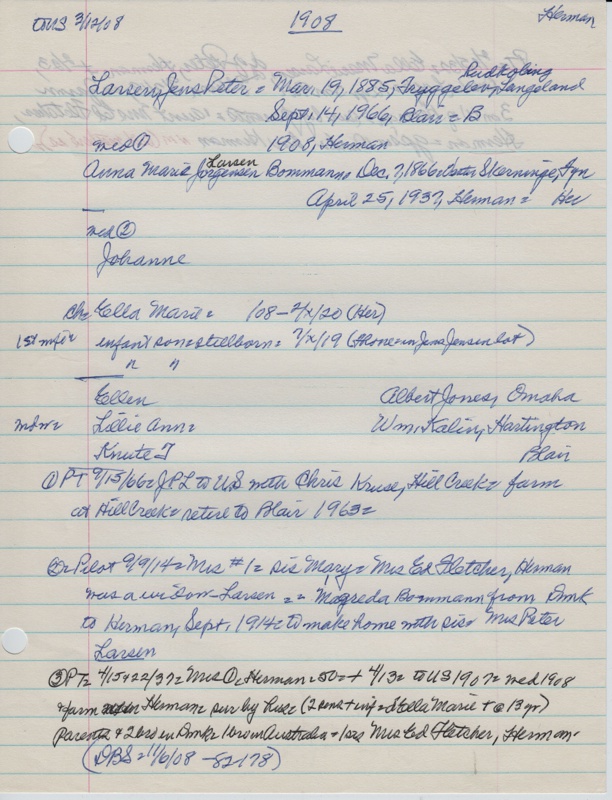 to US 3/12/08 1908 Herman
Rudkobing
Larsen, Jens Peter = Mar. 19, 1885, Tryggelev, Langeland
Sept. 14, 1966, Blair = B
med ① 1908, Herman
Larsen
Anna Marie Jorgensen Bommann, Dec. ?, 1886 Skerninge, Fyn
April 25, 1937, Herman = Her
med ②
Johanne
Ch = Ella Marie = /08 - 2/x/20 (Her)
1st infant son = stillborn = ?/x/19 (alone = in Jens Jensen lot)
" "
Ellen Albert Jones, Omaha
Lillie Ann = Wm. Kalin, Hartington
Knute T Blair
① PT 9/15/66 = JPL to US with Chris Kruse, Hill Creek = farm
at Hill Creek = retire to Blair 1963 =
② = Pilot 9/9/14 = Mrs #1 = sis Mary = Mrs Ed Fletcher, Herman
was a widow - Larsen = = Magreda Bommann from Dmk
to Herman, Sept. 1914 = to make home with sis = Mrs Peter
Larsen
③ PT = 4/15 + 22/37 = Mrs O, Herman = 50 = + 4/13 = to US 1907 = med 1908
+ farm Herman = sur by hus = (2 sons + inf = Stella Marie + @ 13 yr)
parents + 2 bro in Dmk = 1 bro in Australia + 1 sis Mrs Ed Fletcher, Herman -
(DBS = 11/6/08 - 82178)